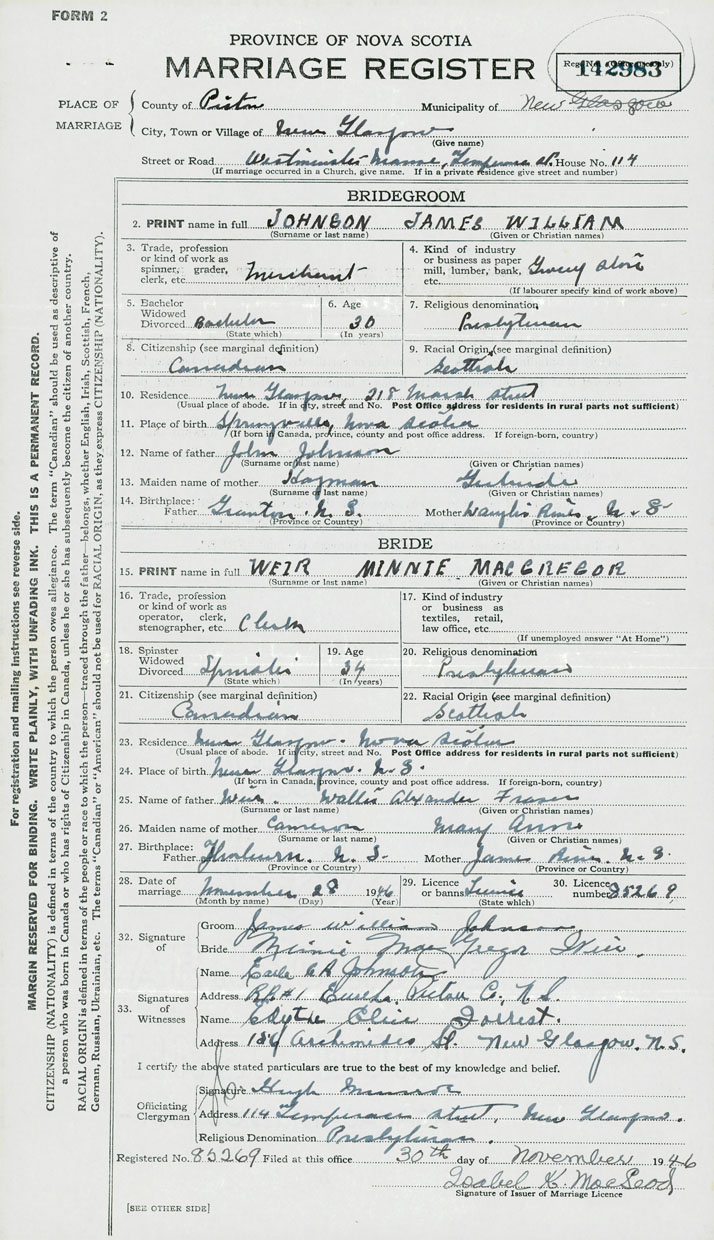 FORM 2
PROVINCE OF NOVA SCOTIA
MARRIAGE REGISTER
142983
PLACE OF MARRIAGE
County of Pictou Municipality of New Glasgow
City, Town or Village of New Glasgow
(Give name)
Street or Road Westminster Manse, Temperance St. House No. 114
(If marriage occurred in a Church, give name. If in a private residence give street and number)
BRIDEGROOM
2. PRINT name in full JOHNSON JAMES WILLIAM
(Surname or last name) (Given or Christian names)
3. Trade, profession or kind of work as spinner, grader, clerk, etc. Merchant
4. Kind of industry or business as paper mill, lumber, bank, etc. Grocery Store
(If labourer specify kind of work above)
5. Bachelor Widowed Divorced Bachelor
(State which)
6. Age 30
(In years)
7. Religious denomination Presbyterian
8. Citizenship (see marginal definition) Canadian
9. Racial Origin (see marginal definition) Scottish
10. Residence New Glasgow, 218 Marsh Street
(Usual place of abode. If in city, street and No. Post Office address for residents in rural parts not sufficient)
11. Place of birth Springville, Nova Scotia
(If born in Canada, province, county and post office address. If foreign-born, country)
12. Name of father John Johnson
(Surname or last name) (Given or Christian names)
13. Maiden name of mother Gertrude
(Surname or last name) (Given or Christian names)
14. Birthplace: Father Granton, N.S. Mother N.S.
(Province or Country) (Province or Country)
BRIDE
15. PRINT name in full WEIR MINNIE MACGREGOR
(Surname or last name) (Given or Christian names)
16. Trade, profession or kind of work as operator, clerk, stenographer, etc. Clerk
17. Kind of industry or business as textiles, retail, law office, etc.
(If unemployed answer "At Home")
18. Spinster Widowed Divorced Spinster
(State which)
19. Age 34
(In years)
20. Religious denomination Presbyterian
21. Citizenship (see marginal definition) Canadian
22. Racial Origin (see marginal definition) Scottish
23. Residence New Glasgow, Nova Scotia
(Usual place of abode. If in city, street and No. Post Office address for residents in rural parts not sufficient)
24. Place of birth New Glasgow, N.S.
(If born in Canada, province, county and post office address. If foreign-born, country)
25. Name of father Weir Alexander Fraser
(Surname or last name) (Given or Christian names)
26. Maiden name of mother Cameron Mary Anne
(Surname or last name) (Given or Christian names)
27. Birthplace: Father Thorburn, N.S. Mother N.S.
(Province or Country) (Province or Country)
28. Date of marriage November 28 1946
(Month by name) (Day) (Year)
29. Licence or banns License
(State which)
30. Licence number 85269
32. Signature of
Groom James William Johnson
Bride Minnie MacGregor Weir.
33. Signatures of Witnesses
Name Earle Johnson
Address RR#1 Eureka, Pictou Co., N.S.
Name Edythe Forrest.
Address Archimedes St. New Glasgow. N.S.
I certify the above stated particulars are true to the best of my knowledge and belief.
Officiating Clergyman
Signature Hugh Munroe
Address 114 Temperance Street, New Glasgow.
Religious Denomination Presbyterian.
Registered No. 85269 Filed at this office 30th day of November 1946
Isabel K. MacLeod
Signature of Issuer of Marriage Licence
[SEE OTHER SIDE]
For registration and mailing instructions see reverse side.
MARGIN RESERVED FOR BINDING. WRITE PLAINLY, WITH UNFADING INK. THIS IS A PERMANENT RECORD.
CITIZENSHIP (NATIONALITY) is defined in terms of the country to which the person owes allegiance. The term "Canadian" should be used as descriptive of
a person who was born in Canada or who has rights of Citizenship in Canada, unless he or she has subsequently become the citizen of another country.
RACIAL ORIGIN is defined in terms of the people or race to which the person—traced through the father—belongs, whether English, Irish, Scottish, French,
German, Russian, Ukrainian, etc. The terms "Canadian" or "American" should not be used for RACIAL ORIGIN, as they express CITIZENSHIP (NATIONALITY).